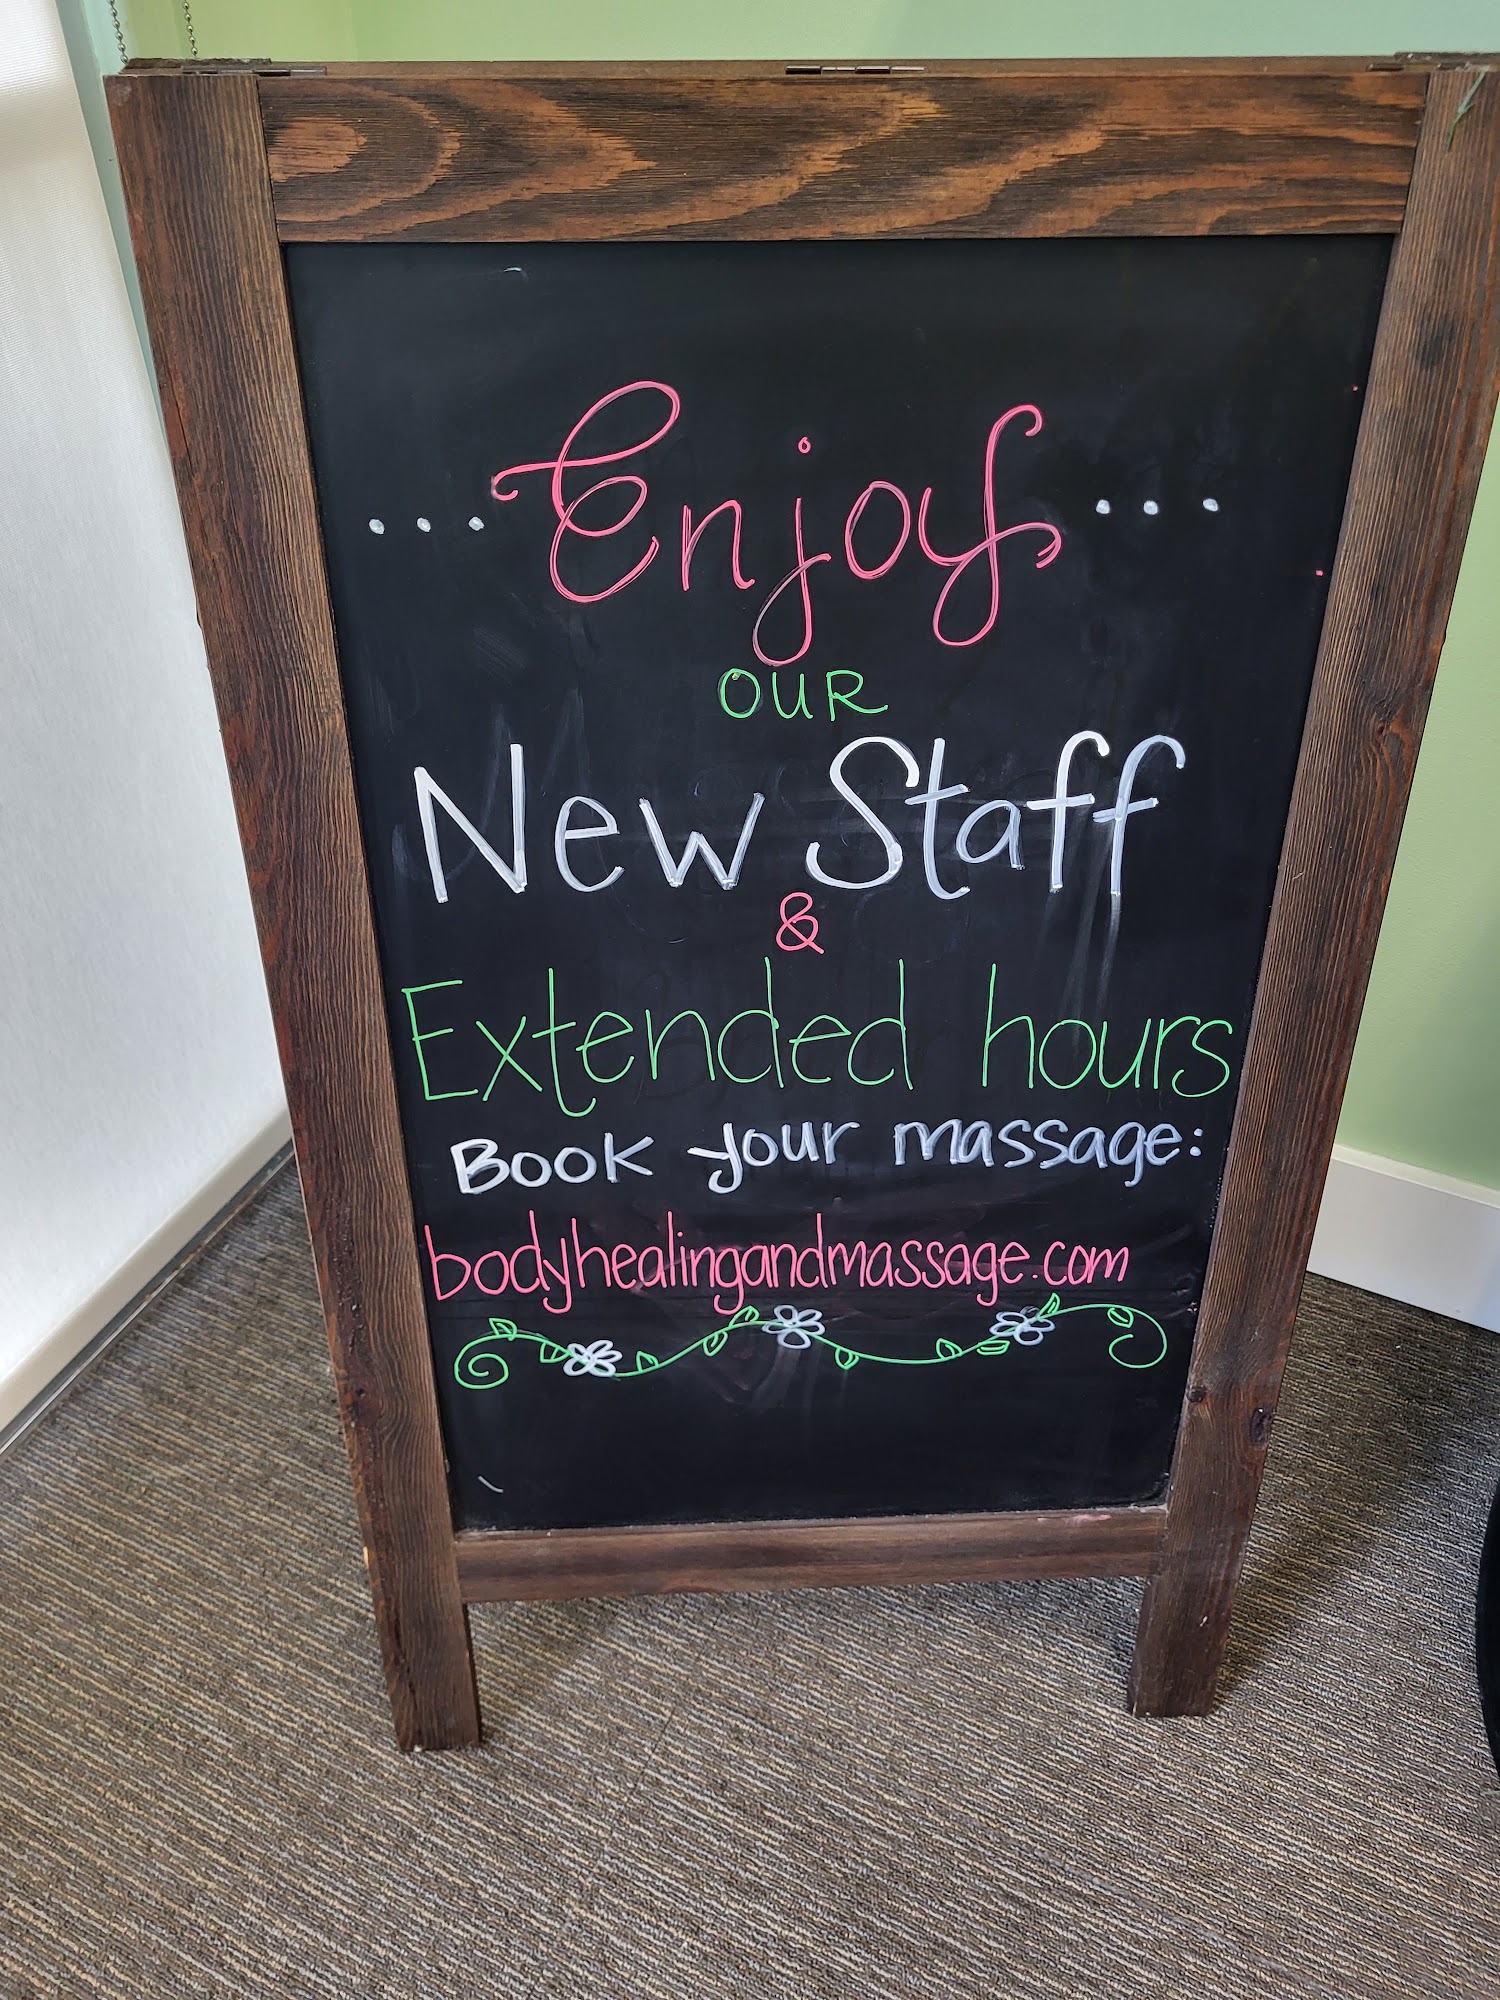 ...Enjoy...
OUR
New Staff
&
Extended hours
Book your massage:
bodyhealingandmassage.com